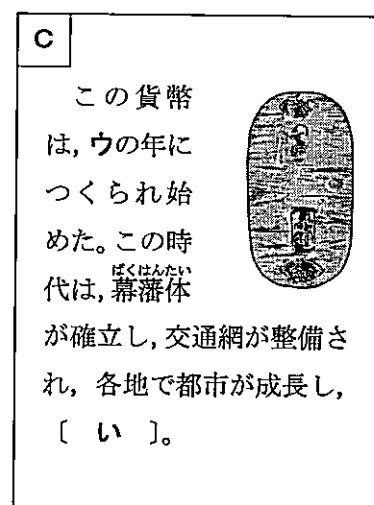 C
この貨幣
は,ウの年に
つくられ始
めた。この時
代は,幕藩体
ばくはんたい
が確立し,交通網が整備さ
れ, 各地で都市が成長し,
〔 い 〕。